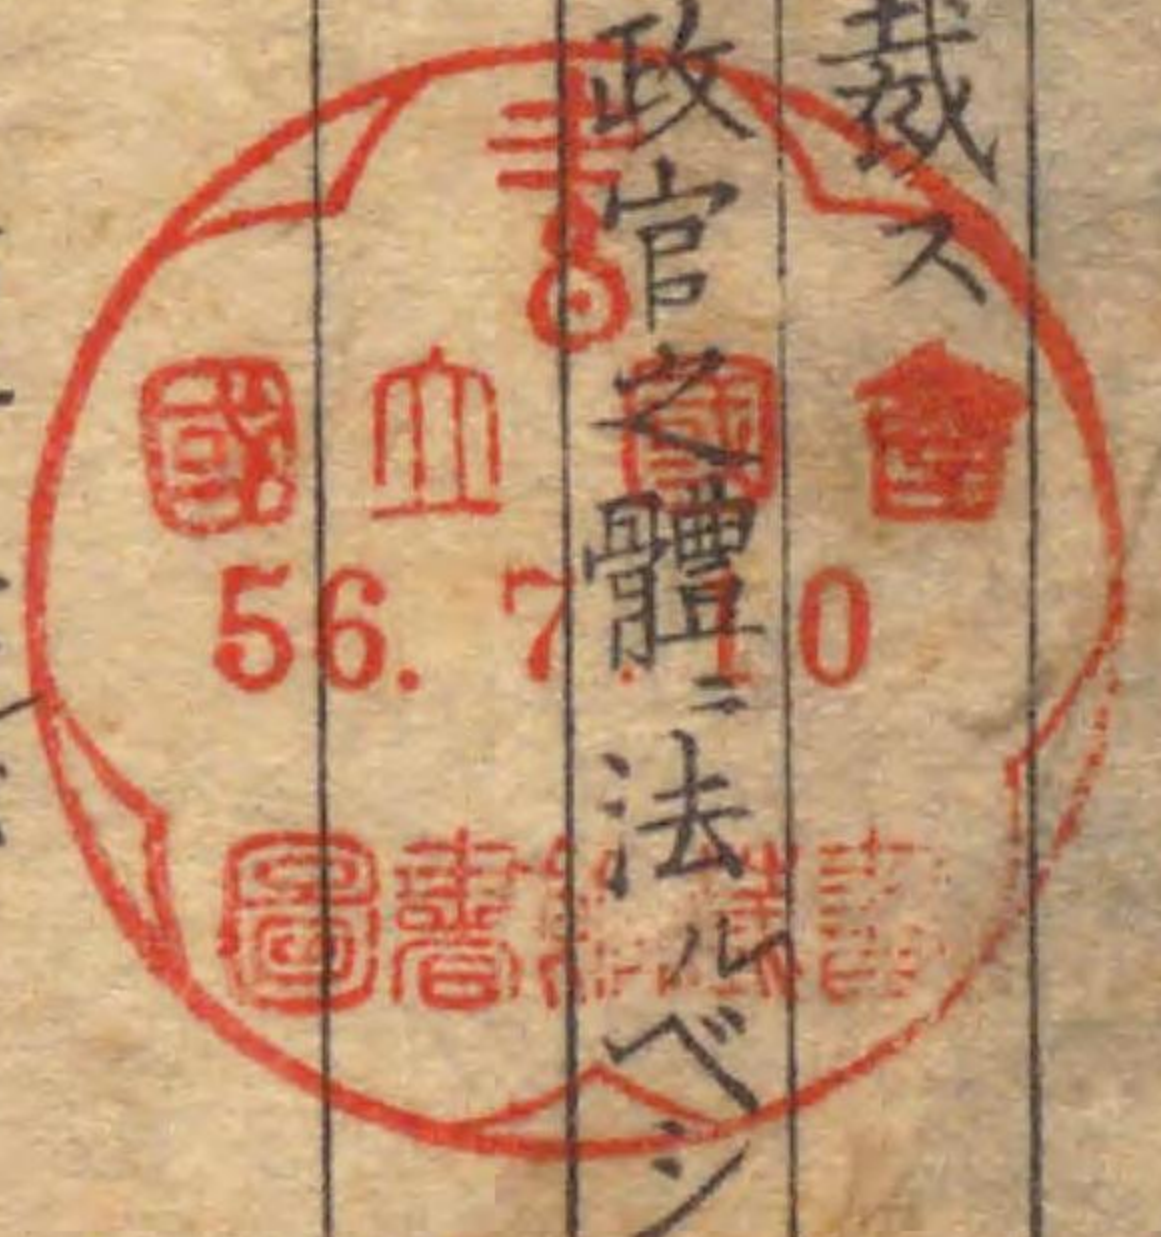 裁ス
政官之體ニ法ルベシ
國立國會
56. 7. 10
圖書